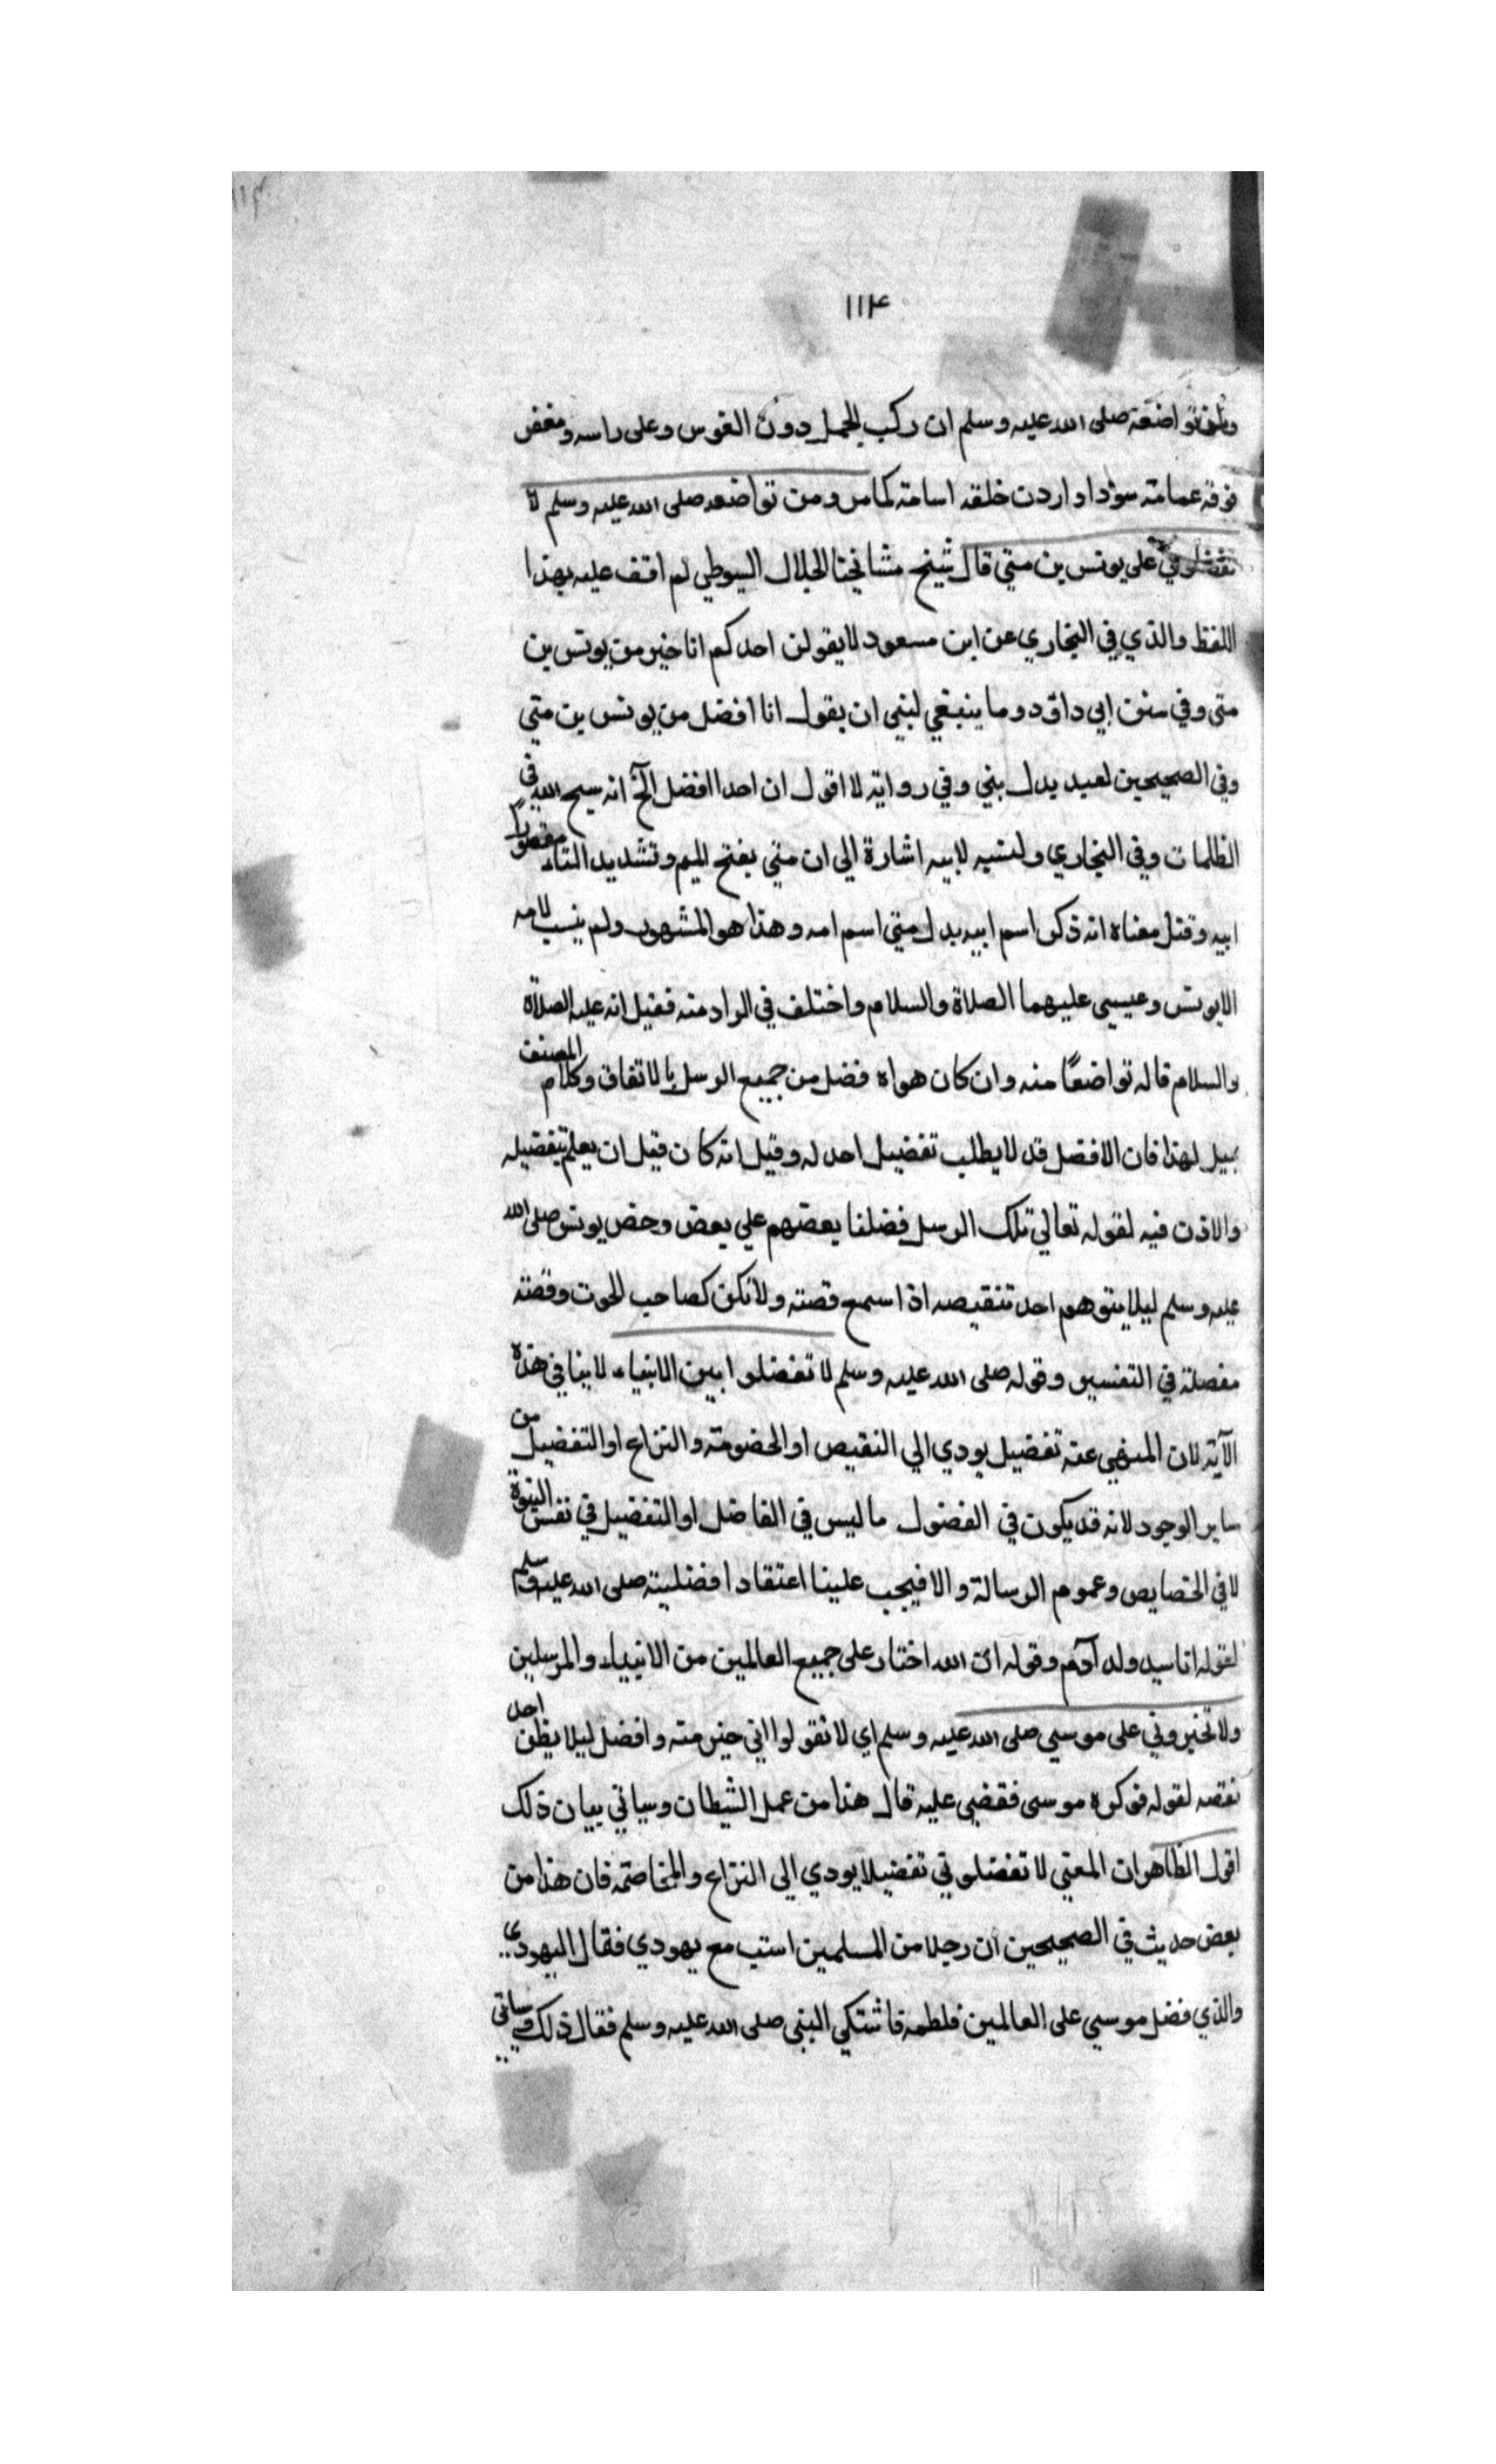 ١١٤
تواضعه صلى الله عليه وسلم ان ركب الجمل دون الفرس وعلى راسه ومغفر
فوقه عمامته سودا واردف خلفه اسامة كما مر ومن تواضعه صلى الله عليه وسلم لا
تفضلوني على يونس بن متي قال شيخ مشائخنا الجلال السيوطي لم اقف عليه بهذا
اللفظ والذي في البخاري عن ابن مسعود لا يقولن احدكم انا خير من يونس بن
متى وفي سنن ابي داود وما ينبغي لنبي ان يقول انا افضل من يونس بن متي
وفي الصحيحين لعبد بدل نبي وفي رواية لا اقول ان احدا افضل الخ انه سبح الله في
الظلمات وفي البخاري ونسبه لابيه اشارة الى ان متي بفتح الميم وتشديد التاء
ابيه وقتل معناه انه ذكر اسم ابيه بدل متي اسم امه وهذا هو المشهور ولم ينسب لامه
الا يونس وعيسي عليهما الصلاة والسلام واختلف في المراد منه فقيل انه عليه الصلاة
والسلام قاله تواضعًا منه وان كان هواه فضل من جميع الرسل بالاتفاق وكلام المصنف
يميل لهذا فان الافضل قد لا يطلب تفضيل احد له وقيل انه كان قبل ان يعلم بتفضيله
والاذن فيه لقوله تعالي تلك الرسل فضلنا بعضهم علي بعض وخص يونس صلى الله
عليه وسلم ليلا يتوهم احد تنقيصه اذا سمع قصته ولا تكن كصاحب الحوت وقصته
مفصلة في التفسير وقوله صلى الله عليه وسلم لا تفضلوا بين الانبياء لا ينافي هذه
الآية لان المنهي عنه تفضيل يودي الي النقيص او الخصومة والنزاع او التفضيل من
ساير الوجود لانه قد يكون في الفضول ما ليس في الفاضل او التفضيل في نفس النبوة
لا في الخصايص وعموم الرسالة والا فيجب علينا اعتقاد افضليته صلى الله عليه وسلم
لقوله انا سيد ولد آدم وقوله ان الله اختار على جميع العالمين من الانبياء والمرسلين
ولا تخيروني على موسي صلى الله عليه وسلم اي لا تقولوا اني خير منه وافضل ليلا يظن احد
نقصه لقوله فوكزه موسى فقضى عليه قال هذا من عمل الشيطان وسياتي بيان ذلك
اقول الظاهر ان المعني لا تفضلوني تفضيلا يودي الى النزاع والمخاصمة فان هذا من
بعض حديث في الصحيحين ان رجلا من المسلمين استب مع يهودي فقال اليهودي
والذي فضل موسي على العالمين فلطمه فاشتكي النبي صلى الله عليه وسلم فقال ذلك وسياتي